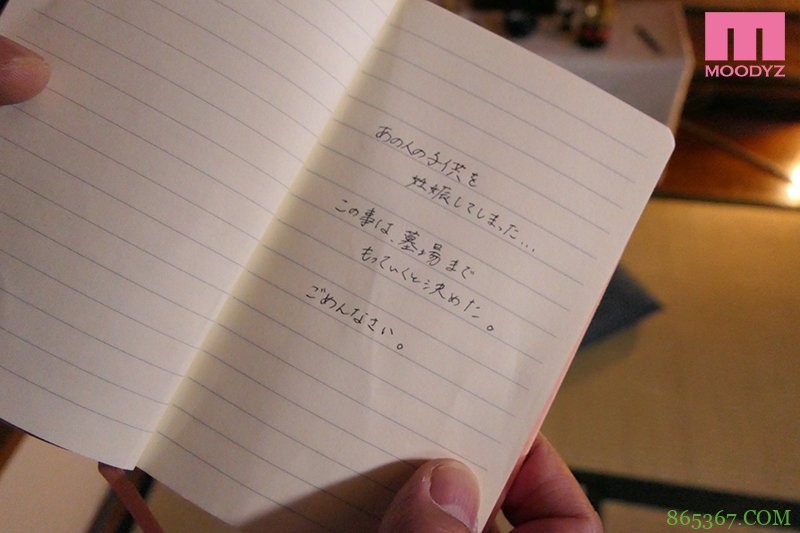 MOODYZ
あの人の子供を
妊娠してしまった…
この事は、墓場まで
もっていくと決めた。
ごめんなさい。
865367.COM